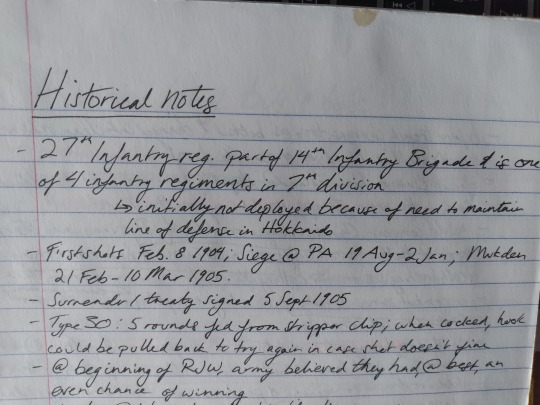 Historical notes
- 27th Infantry reg. part of 14th Infantry Brigade & is one
of 4 infantry regiments in 7th division
↳ initially not deployed because of need to maintain
line of defense in Hokkaido
- First shots Feb. 8 1904; Siege @ PA 19 Aug-2 Jan; Mukden
21 Feb - 10 Mar 1905.
- Surrender / treaty signed 5 Sept 1905
- Type 30: 5 rounds fed from stripper clip; when cocked, hook
could be pulled back to try again in case shot doesn't fire
- @ beginning of RJW, army believed they had, @ best, an
even chance of winning